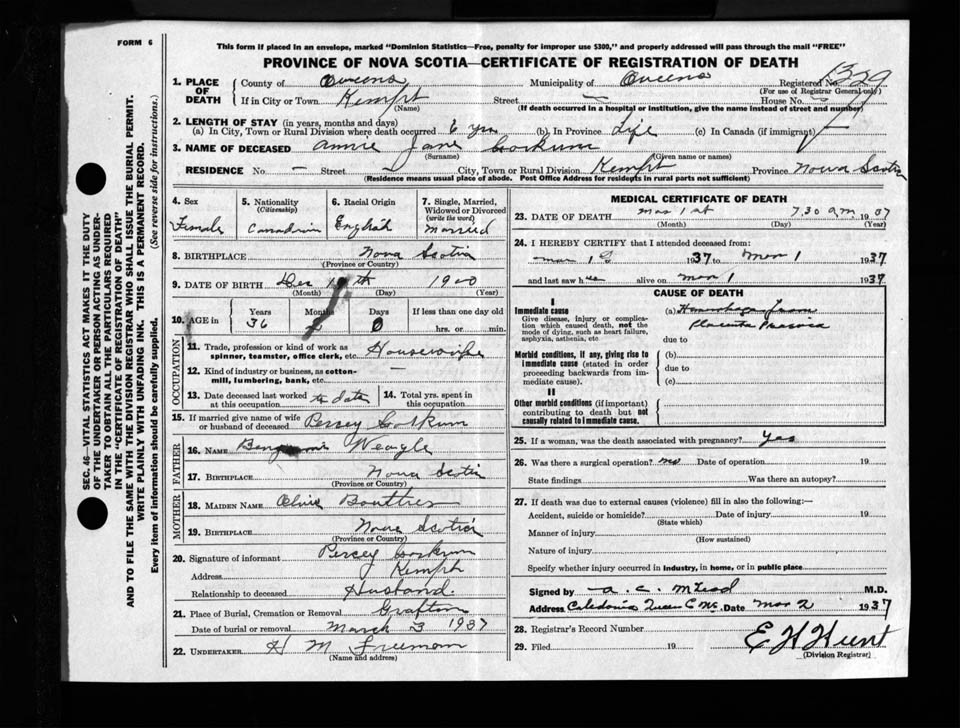 FORM 6
This form if placed in an envelope, marked "Dominion Statistics—Free, penalty for improper use $300," and properly addressed will pass through the mail "FREE"
PROVINCE OF NOVA SCOTIA—CERTIFICATE OF REGISTRATION OF DEATH
1. PLACE OF DEATH
County of Queens Municipality of Queens Registered No.
(For use of Registrar General only)
If in City or Town Kempt Street — House No. —
(Name) (If death occurred in a hospital or institution, give the name instead of street and number)
2. LENGTH OF STAY (in years, months and days)
(a) In City, Town or Rural Division where death occurred 6 yrs (b) In Province Life (c) In Canada (if immigrant) —
3. NAME OF DECEASED Annie Jane Corkum
(Surname) (Given name or names)
RESIDENCE No. — Street — City, Town or Rural Division Kempt Province Nova Scotia
(Residence means usual place of abode. Post Office Address for residents in rural parts not sufficient)
4. Sex Female
5. Nationality (Citizenship) Canadian
6. Racial Origin English
7. Single, Married, Widowed or Divorced (write the word) Married
8. BIRTHPLACE Nova Scotia
(Province or Country)
9. DATE OF BIRTH Dec 1900
(Month) (Day) (Year)
10. AGE in Years Months Days If less than one day old
36 0 hrs. or min.
OCCUPATION
11. Trade, profession or kind of work as spinner, teamster, office clerk, etc. Housewife
12. Kind of industry or business, as cotton-mill, lumbering, bank, etc. —
13. Date deceased last worked at this occupation to date
14. Total yrs. spent in this occupation
15. If married give name of wife or husband of deceased Persey Corkum
FATHER
16. NAME Weagle
17. BIRTHPLACE Nova Scotia
(Province or Country)
MOTHER
18. MAIDEN NAME Boutlier
19. BIRTHPLACE Nova Scotia
(Province or Country)
20. Signature of informant Percey Corkum
Address Kempt
Relationship to deceased Husband
21. Place of Burial, Cremation or Removal Grafton
Date of burial or removal March 3 1937
22. UNDERTAKER H M Freeman
(Name and address)
MEDICAL CERTIFICATE OF DEATH
23. DATE OF DEATH Mar 1st 7.30 a.m. 1937
(Month) (Day) (Year)
24. I HEREBY CERTIFY that I attended deceased from:
Mar 1 1937 to Mar 1 1937
and last saw her alive on Mar 1 1937
CAUSE OF DEATH
I
Immediate cause
Give disease, injury or complication which caused death, not the mode of dying, such as heart failure, asphyxia, asthenia, etc
(a) Hemorrhage from
Placenta Praevia
due to
Morbid conditions, if any, giving rise to immediate cause (stated in order proceeding backwards from immediate cause).
(b)
due to
(c)
II
Other morbid conditions (if important) contributing to death but not causally related to immediate cause.
25. If a woman, was the death associated with pregnancy? Yes
26. Was there a surgical operation? no Date of operation 19
State findings Was there an autopsy?
27. If death was due to external causes (violence) fill in also the following:—
Accident, suicide or homicide? Date of injury 19
(State which)
Manner of injury
(How sustained)
Nature of injury
Specify whether injury occurred in industry, in home, or in public place
Signed by A. C. McLeod M.D.
Address Caledonia Queens Co NS Date Mar 2 1937
28. Registrar's Record Number
29. Filed 19 E H Hunt
(Division Registrar)
SEC. 46—VITAL STATISTICS ACT MAKES IT THE DUTY OF THE UNDERTAKER OR PERSON ACTING AS UNDERTAKER TO OBTAIN ALL THE PARTICULARS REQUIRED IN THE "CERTIFICATE OF REGISTRATION OF DEATH"
AND TO FILE THE SAME WITH THE DIVISION REGISTRAR WHO SHALL ISSUE THE BURIAL PERMIT.
WRITE PLAINLY WITH UNFADING INK. THIS IS A PERMANENT RECORD.
Every item of information should be carefully supplied. (See reverse side for instructions.)